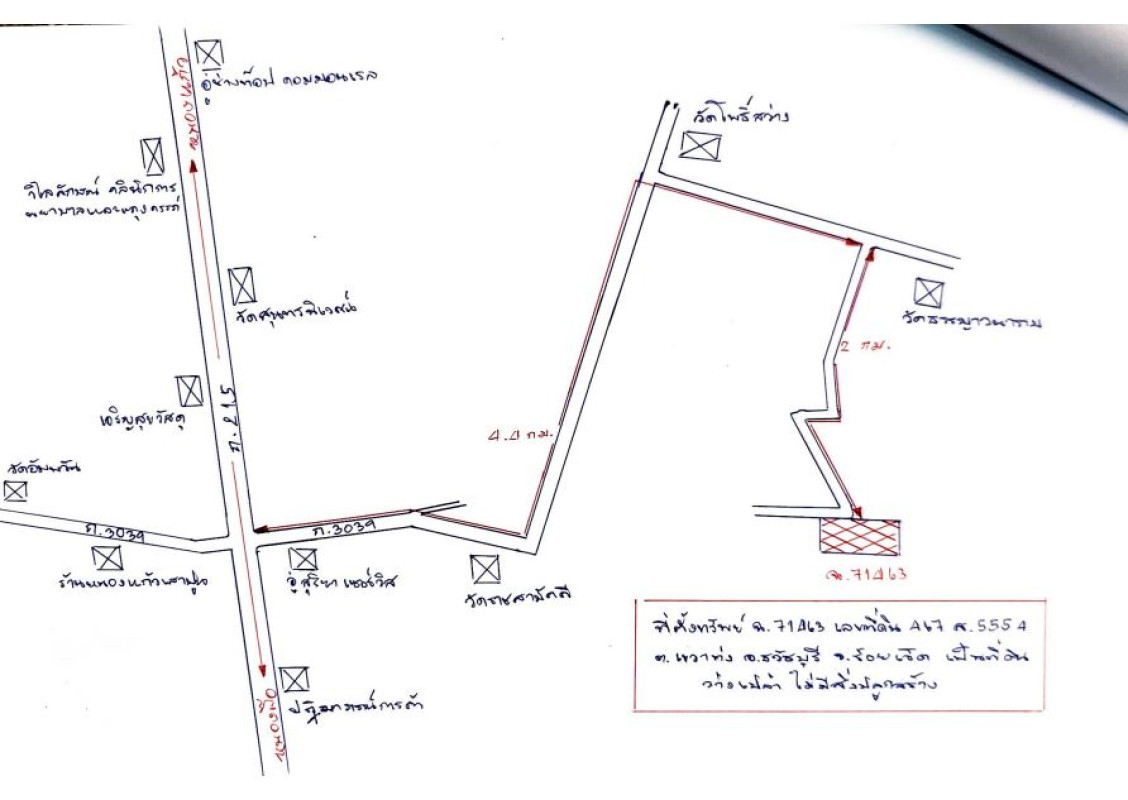 หนองแก้ว
อู่ช่างท๊อป คอมมอนเรล
วัดโพธิ์สว่าง
วิไลลักษณ์ คลินิกการ
พยาบาลและผดุงครรภ์
วัดสุนทรนิเวศน์
วัดธรรมุาวนาราม
2 กม.
ถ.215
เจริญสุขวัสดุ
4.4 กม.
วัดอัมพวัน
ถ.3039
ถ.3039
ร้านหนองแก้วเสาปูน
อู่สุริยา เซอร์วิส
วัดราษสามัคคี
ฉ.71463
ที่ตั้งทรัพย์ ฉ.71463 เลขที่ดิน 467 ส.5554
ต.เขวาทุ่ง อ.ธวัชบุรี จ.ร้อยเอ็ด เป็นที่ดิน
ว่างเปล่า ไม่มีสิ่งปลูกสร้าง
หนองผือ
ปฏิมาภรณ์การค้า